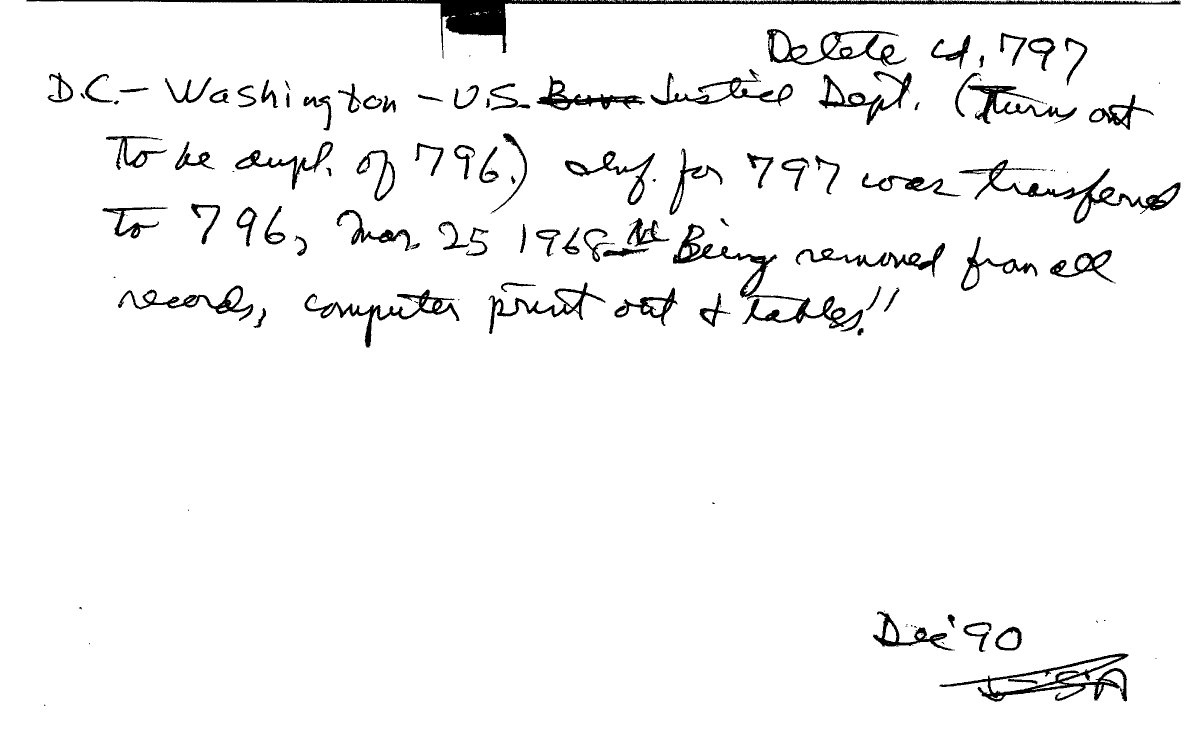 Delete 4,797
D.C. – Washington – U.S. Justice Dept. (Turns out
to be dupl. of 796.) Inf. for 797 was transferred
to 796, Mar. 25 1968 Being removed from all
records, computer print out & tables!!
Dec '90
USA